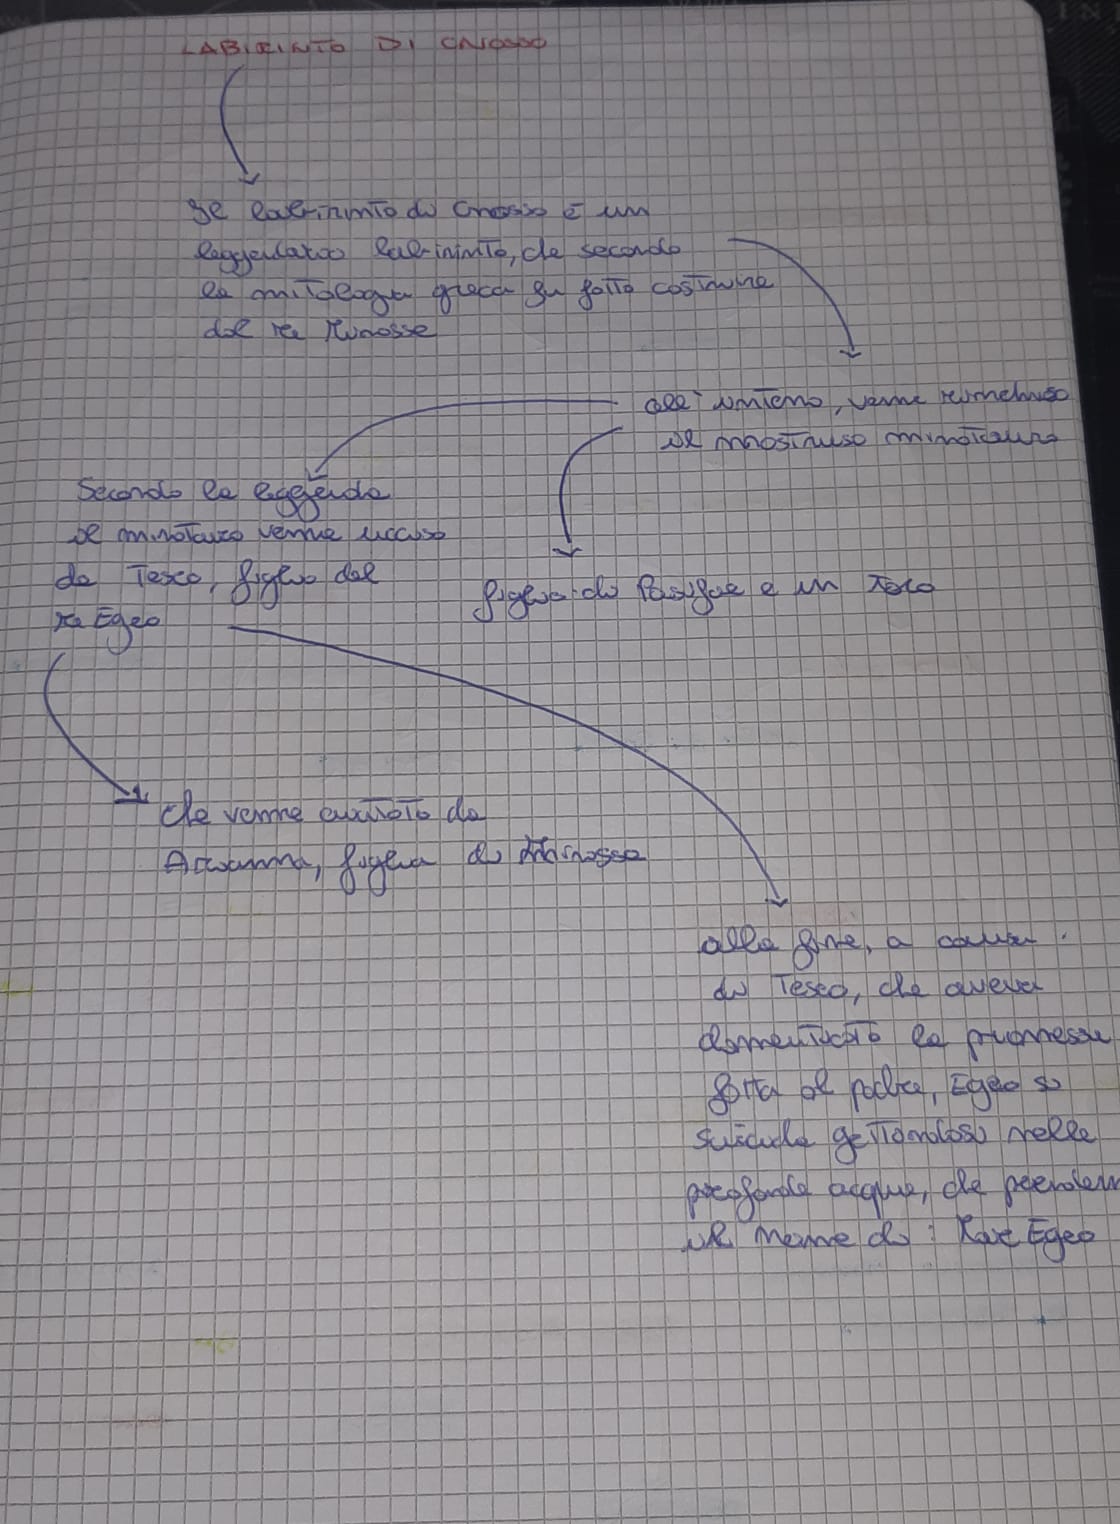 LABIRINTO DI CNOSSO
Il labirinto di Cnosso è un
leggendario labirinto, che secondo
la mitologia greca fu fatto costruire
dal re Minosse
all'interno, venne rinchiuso
il mostruoso minotauro
Secondo la leggenda
il minotauro venne ucciso
da Teseo, figlio del
re Egeo
figlio di Pasifae e un Toro
che venne aiutato da
Arianna, figlia di Minosse
alla fine, a causa
di Teseo, che aveva
dimenticato la promessa
fatta al padre, Egeo si
suicida gettandosi nelle
profonde acque, che prenderà
il nome di: Mar Egeo